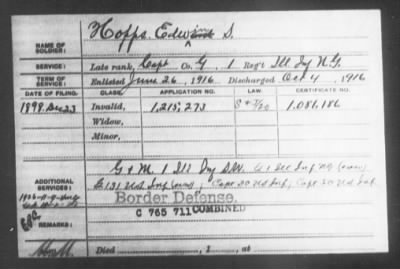 NAME OF SOLDIER: Hopps, Edwin S.
SERVICE: Late rank, Capt Co. G, 1 Reg't Ill Inf N.G.
TERM OF SERVICE: Enlisted June 26, 1916 Discharged Oct 4, 1916
DATE OF FILING. CLASS. APPLICATION NO. LAW. CERTIFICATE NO.
1898 Dec 23 Invalid, 1,215,273 1,081,186
Widow,
Minor,
ADDITIONAL SERVICES: G & M. 1 Ill Inf
131 U.S. Inf; Capt 30 U.S. Inf; Capt 20 U.S. Inf
Border Defense.
C 765 711 COMBINED
REMARKS:
Died , 1 , at